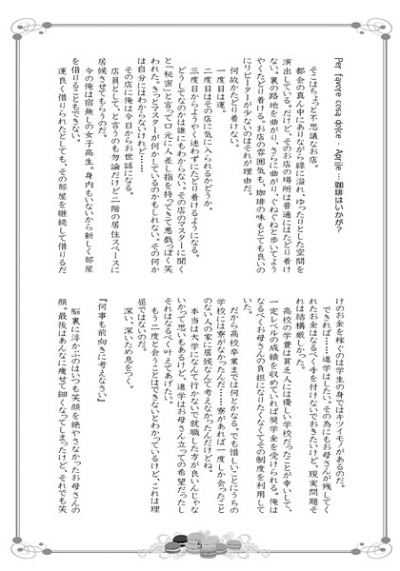 Per favore cosa dolce - Aprile … 珈琲はいかが？
そこはちょっと不思議なお店。
都会の真ん中にありながら緑に溢れ、ゆったりとした空間を
演出している。だけど、そのお店の場所は普通にはたどり着け
ない。裏の路地を曲がり、さらに曲がり、ぐねぐねと歩いてよう
やくたどり着ける。お店の雰囲気も、珈琲の味もとても良いの
にリピーターが少ないのはそれが理由だ。
何故かたどり着けない。
一度目は運。
二度目はその店に気に入られるかどうか。
三度目からようやく迷わずにたどり着けるようになる。
どうしてなのかは誰にもわからない。その店のマスターに聞く
と『秘密』と言って口元に人差し指を持ってきて悪戯っぽく笑
われた。きっとマスターが何かしているのかもしれない。その何か
は自分にはわからないけれど……
その店に俺は今日からお世話になる。
店員として、と言うのも勿論だけど二階の居住スペースに
居候させてもらうのだ。
今の俺は宿無しの女子高生。身内もいないから新しく部屋
を借りることもできない。
運良く借りられたとしても、その部屋を継続して借りるだ
けのお金を稼ぐのは学生の身ではキツイモノがあるのだ。
できれば……進学はしたい。その為にもお母さんが残してく
れたお金はなるべく手を付けないでおきたいけど、現実問題そ
れは結構厳しかった。
高校の学費は貧乏人には優しい学校だったことが幸いして、
一定レベルの成績を収めていれば奨学金を受けられる。俺は
なるべくお母さんの負担になりたくなくてその制度を利用して
いた。
だから高校卒業までは何とかなる。でも惜しいことにうちの
学校には寮がなかったんだ……寮があれば一度しか会ったこと
のない人の家に居候なんて考えなかったんだけどね。
本当は大学になんて行かないで就職した方が良いんじゃな
いかって思いもあるけど、進学はお母さん立っての希望だったし
それはなるべく叶えてあげたい。
もう二度と会うことはできないとわかっているけど、これは理
屈ではないのだ。
深い、深いため息をつく。
『何事も前向きに考えなさい』
脳裏に浮かぶのはいつも笑顔を絶やさなかったお母さんの
顔。最後はあんなに痩せて細くなってしまったけど、それでも笑
5